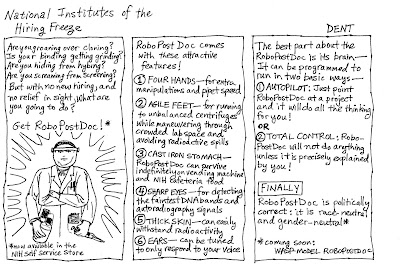 National Institutes of the
Hiring Freeze
DENT
Are you groaning over cloning?
Is your binding getting grinding?
Are you hiding from hybing?
Are you screaming from screening?
But with no new hiring, and
no relief in sight, what are
you going to do?
Get RoboPostDoc!*
*now available in the
NIH Self Service Store
RoboPostDoc comes
with these attractive
features!
① FOUR HANDS—for extra
manipulations and pipet speed
② AGILE FEET—for running
to unbalanced centrifuges
while maneuvering through
crowded lab space and
avoiding radioactive spills
③ CAST IRON STOMACH—
RoboPostDoc can survive
indefinitely on vending machine
and NIH Safeteria food
④ SHARP EYES—for detecting
the faintest DNA bands and
autoradiography signals
⑤ THICK SKIN—can easily
withstand radioactivity
⑥ EARS—can be tuned
to only respond to your voice
The best part about the
RoboPostDoc is its brain—
It can be programmed to
run in two basic ways—
① AUTOPILOT: Just point
RoboPostDoc at a project
and it will do all the thinking
for you!
OR
② TOTAL CONTROL: Robo-
PostDoc will not do anything
unless it is precisely explained
by you!
FINALLY
RoboPostDoc is politically
correct: it is race-neutral
and gender-neutral*
*coming soon:
WASP-MODEL ROBOPOSTDOC